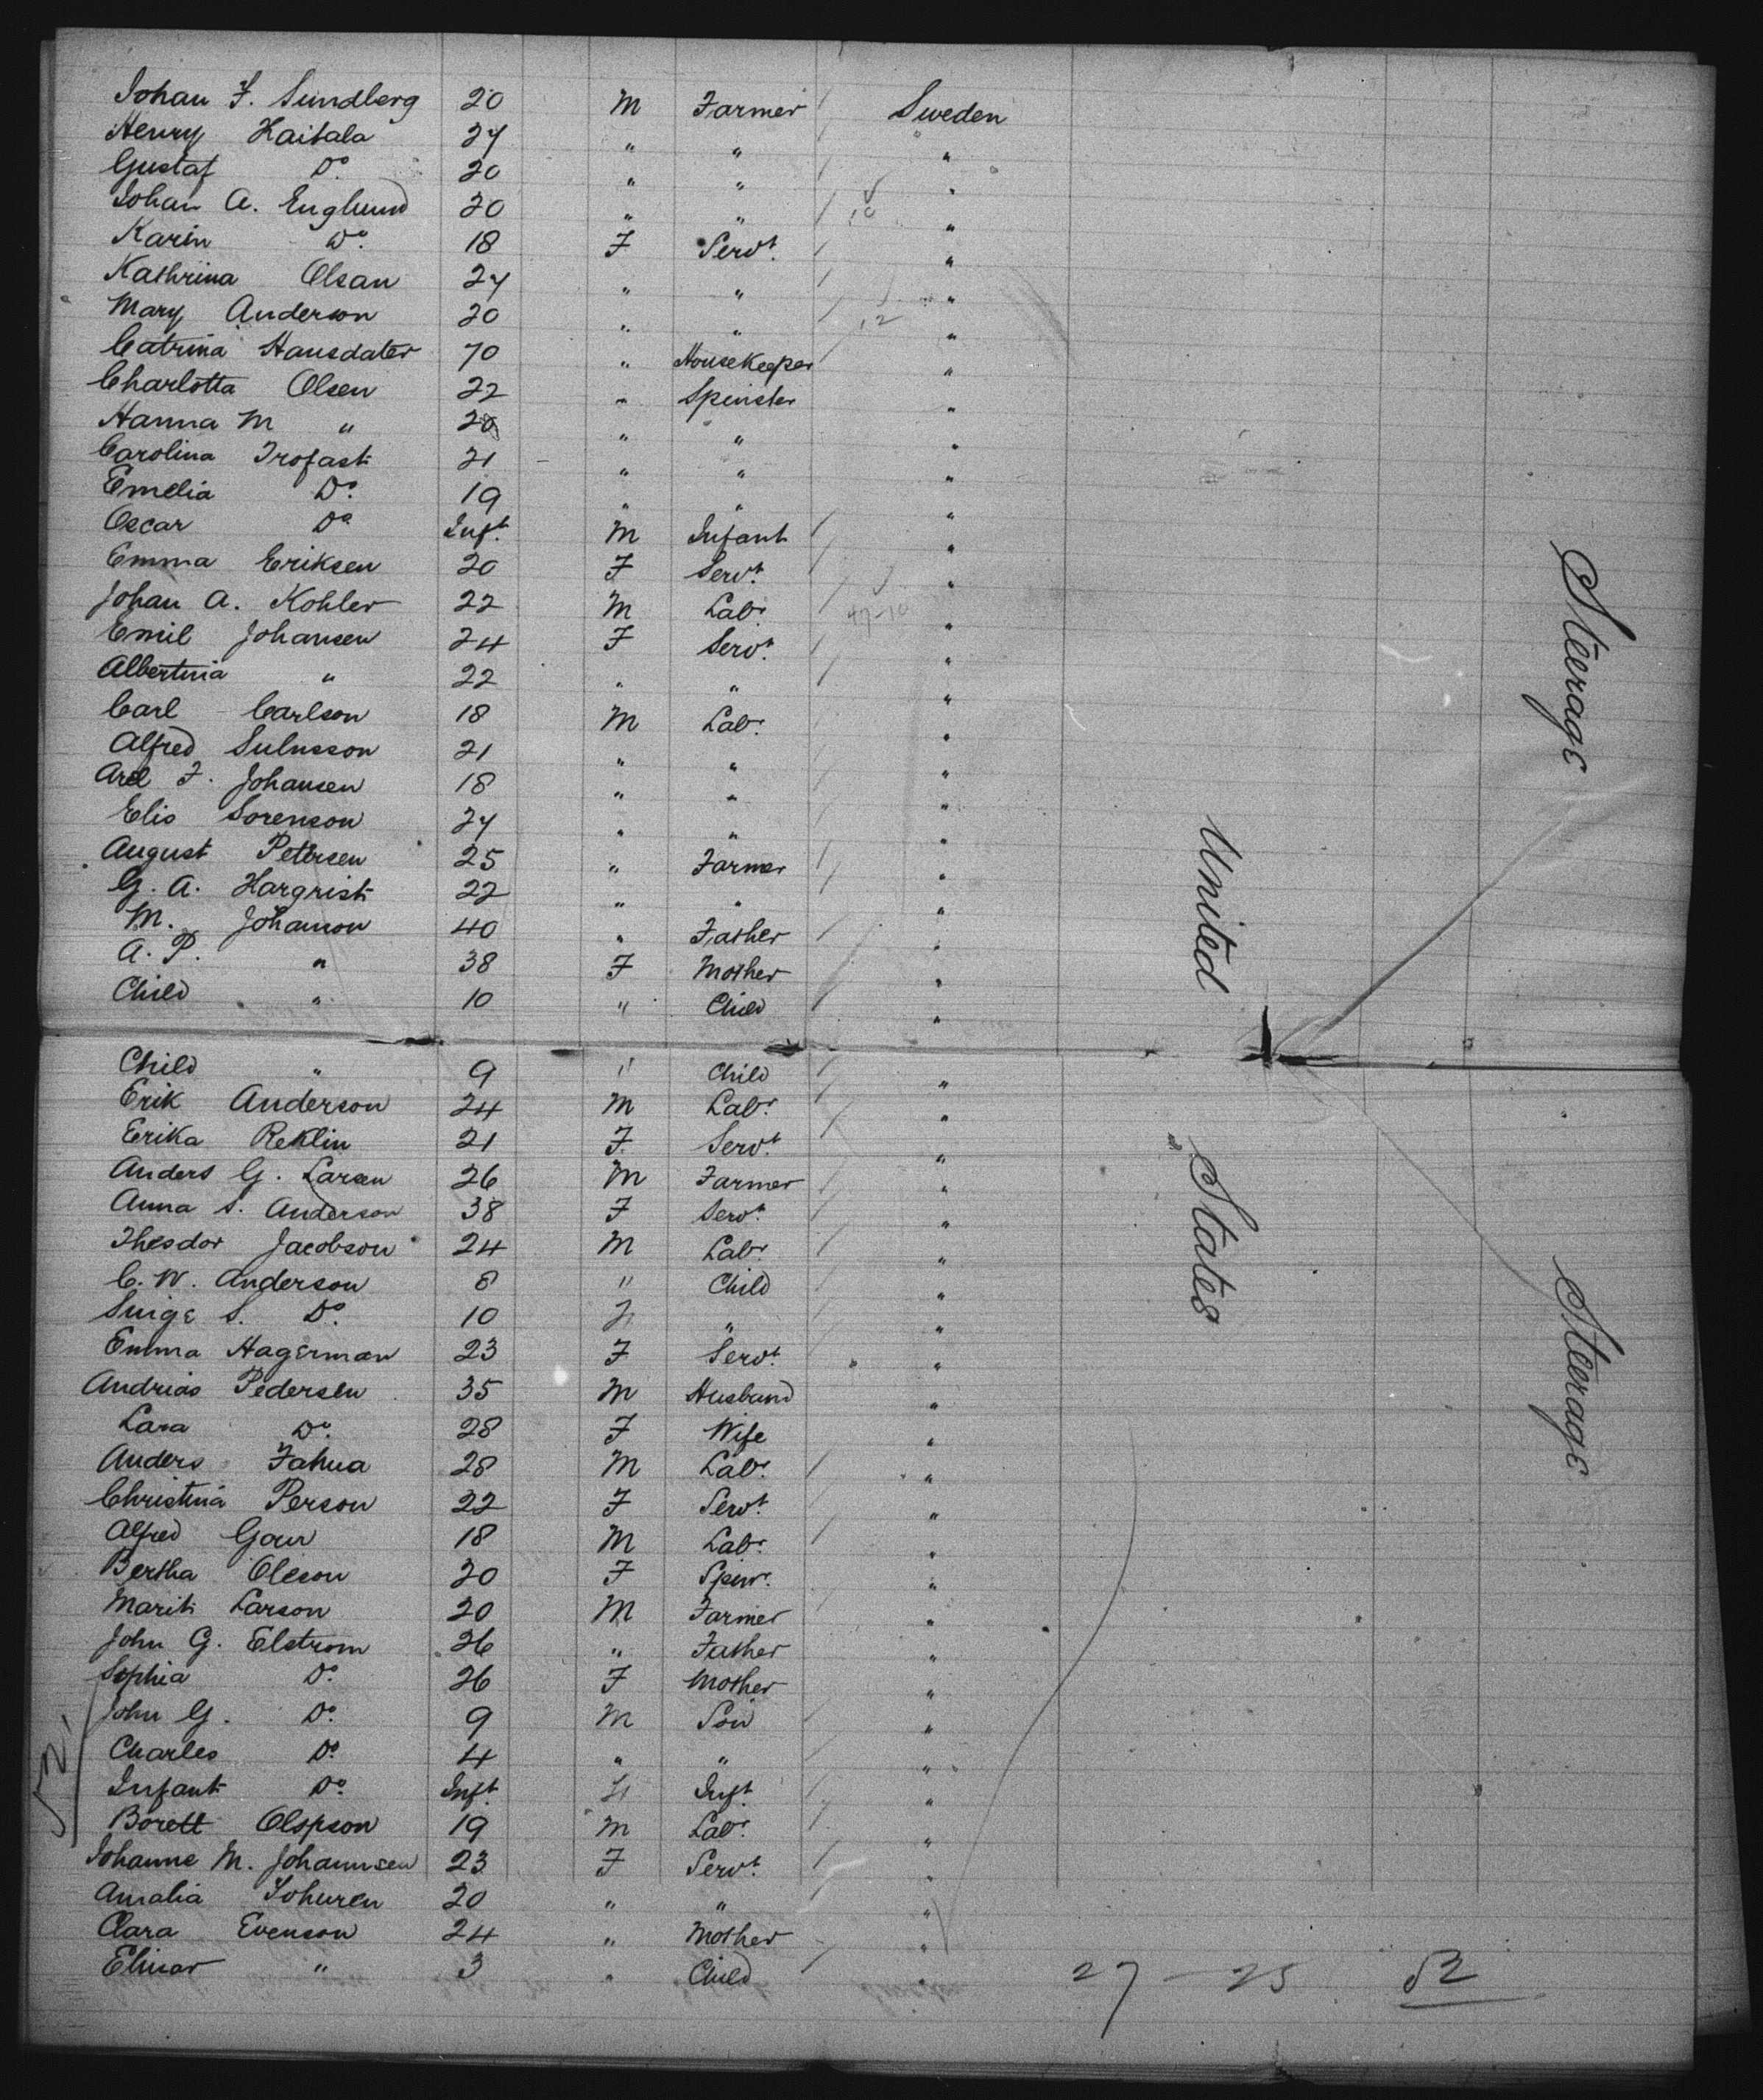 Johan F. Sundberg 20 M Farmer Sweden
Henry Haitala 27 " " "
Gustaf Do. 20 " " "
Johan A. Englund 20 " " "
Karin Do. 18 F Servt. "
Kathrina Olsan 27 " " "
Mary Anderson 20 " " "
Catrina Hansdater 70 " Housekeeper "
Charlotta Olsen 22 " Spinster "
Hanna M " 20 " " "
Carolina Trofast 21 " " "
Emelia Do. 19 " " "
Oscar Do Inft. M Infant "
Emma Eriksen 20 F Servt. "
Johan A. Kohler 22 M Labr. "
Emil Johansen 24 F Servt. "
Albertina " 22 " " "
Carl Carlson 18 M Labr. "
Alfred 21 " " "
Axel F. Johansen 18 " " "
Elis Sorenson 27 " " "
August Petersen 25 " Farmer "
G. A. Hargrist 22 " " "
M. Johanson 40 " Father "
A. P. " 38 F Mother "
Child " 10 " Child "
Child " 9 " Child "
Erik Anderson 24 M Labr. "
Erika Reklin 21 F. Servt. "
Anders G. Larsen 26 M Farmer "
Anna S. Anderson 38 F Servt. "
Thesdor Jacobson 24 M Labr. "
C. W. Anderson 8 " Child "
S. Do. 10 F " "
Emma Hagerman 23 F Servt. "
Andrias Pedersen 35 M Husband "
Lara Do. 28 F Wife "
Anders Fahua 28 M Labr. "
Christina Person 22 F Servt. "
Alfred 18 M Labr. "
Bertha Oleson 20 F Spinr. "
Marit Larson 20 M Farmer "
John G. Elstrom 36 " Father "
Sophia Do. 26 F Mother "
John G. Do. 9 M Son "
Charles Do. 4 " " "
Infant Do. Inft. Inft "
Borett Olspson 19 M Labr. "
Johanne M. Johannsen 23 F Servt. "
Amalia 20 " " "
Clara Evenson 24 " Mother "
Elinar " 3 " Child "
United States
Steerage
Steerage
27 - 25 52
52